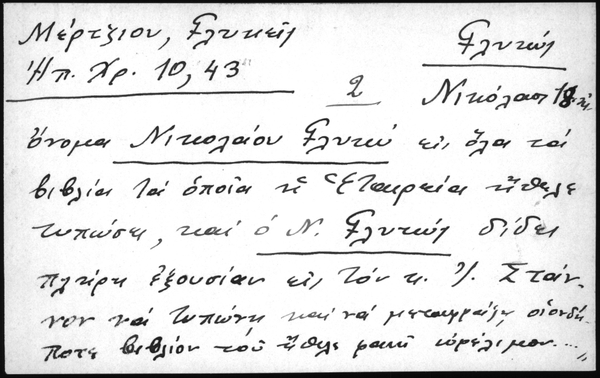 Μέρτζιου, Γλυκεῖς
Γλυκύς
Ἠπ. Χρ. 10, 43
2
Νικόλαος 18
ὄνομα Νικολάου Γλυκύ εἰς ὅλα τά
βιβλία τά ὁποῖα ἡ Ἑταιρεία ἤθελε
τυπώσει, καί ὁ Ν. Γλυκύς δίδει
πλήρη ἐξουσίαν εἰς τόν κ. Ἰ. Στάν-
νον νά τυπώνη καί νά μεταφράζη οἱονδή-
ποτε βιβλίον τοῦ ἤθελε φανῆ ὠφέλιμον...,,